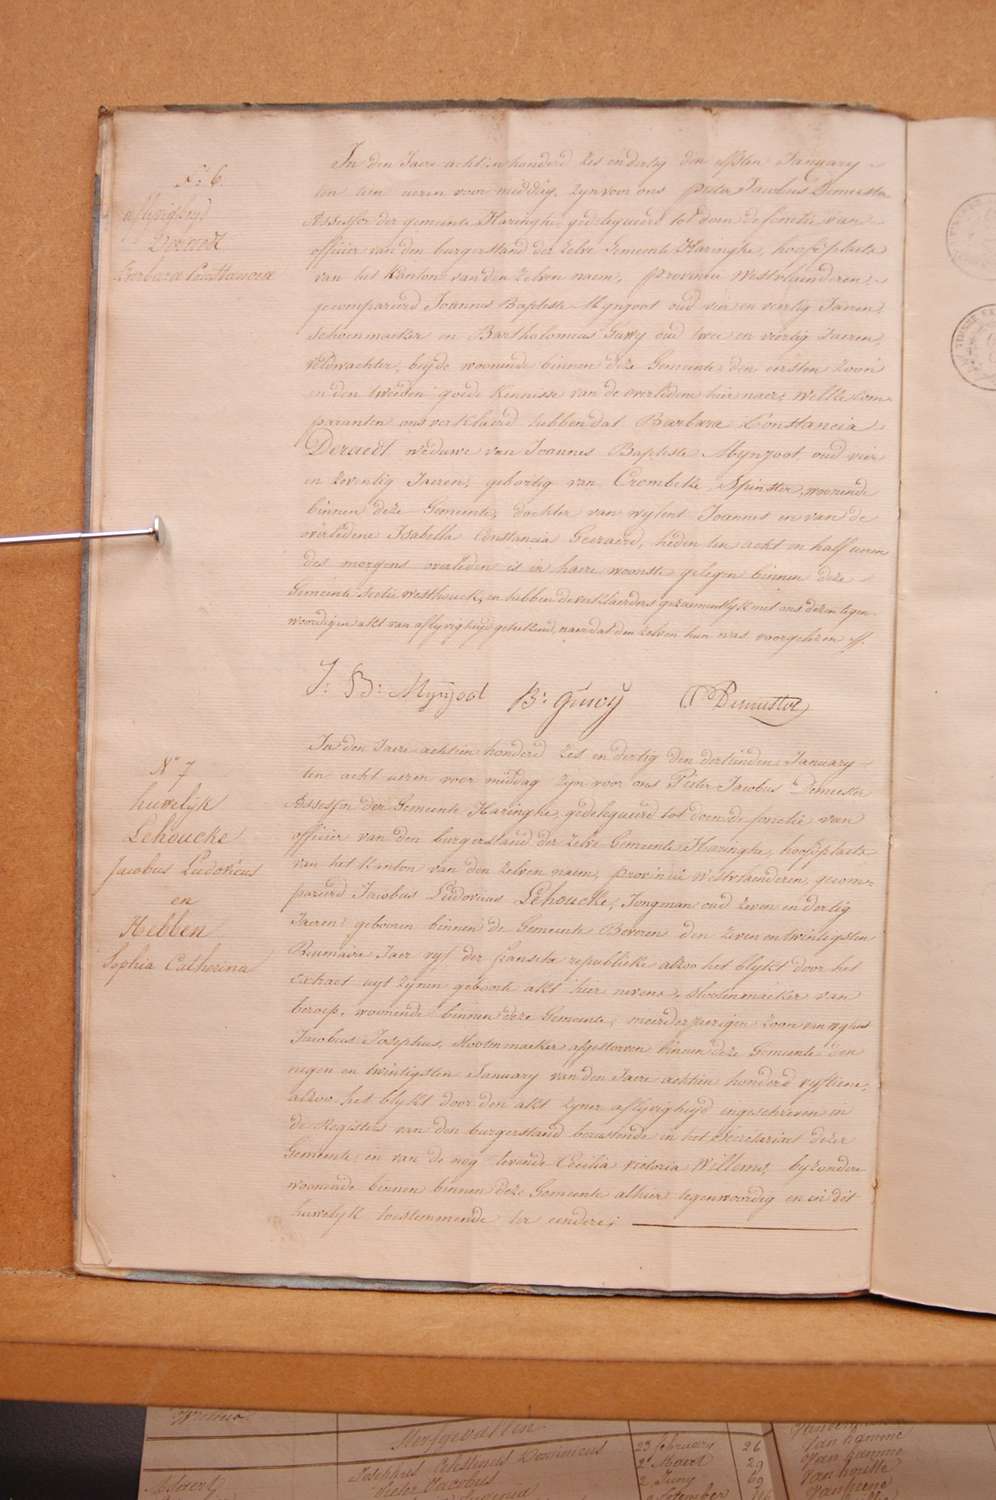 N: 6.
aflyvigheyd
Deraedt
Barbara Constancia
In den Jaere achtien honderd zes en dertig den elfsten January
ten tien ueren voor middag, zyn voor ons Pieter Jacobus Demester
Assessor der gemeente Haringhe, gedelegueerd tot doen de fonctie van
officier van den burgerstand der zelve Gemeente Haringhe, hoofdplaets
van het Kanton van den zelven naem, Provincie Westvlaenderen,
gecompareerd Joannes Baptiste Mynjoot oud vier en veertig Jaeren,
schoenmaeker en Bartholomeus Guwy oud twee en viertig Jaeren,
veldwachter, beyde woonende binnen deze Gemeente, den eersten zoon
en den tweeden goede kennisse van de overledene hier naer, welke com-
paranten ons verklaerd hebben dat Barbara Constancia
Deraedt weduwe van Joannes Baptiste Mynjoot, oud vier
en zeventig Jaeren, geboortig van Crombeke, Spinster, woonende
binnen deze Gemeente, dochter van wylent Joannes en van de
overledene Isabella Constancia Geeraerd, heden ten acht en half ueren
des morgens overleden is in haere woonste gelegen binnen deze
Gemeente Sectie Westhouck, en hebben de verklaerders gezaementlyk met ons dezen tegen-
woordigen akt van aflyvigheyd geteekend, naer dat den zelven hun was voorgelezen
J: B: Mynjoot B: Guwy PJ Demester
N° 7
huwelyk
Lehoucke
Jacobus Ludovicus
en
Hebben
Sophia Catherina
In den Jaere achtien honderd zes en dertig den dertienden January
ten acht ueren voor middag zyn voor ons Pieter Jacobus Demester
Assessor der Gemeente Haringhe, gedelegueerd tot doen de fonctie van
officier van den burgerstand der zelve Gemeente Haringhe, hoofdplaets
van het Kanton van den zelven naem, provincie Westvlaenderen, gecom-
pareerd Jacobus Ludovicus Lehoucke, Jongman oud zeven en dertig
Jaeren geboren binnen de Gemeente Beveren den zeven en twintigsten
Brumaire Jaer vyf der fransche republicke alzoo het blykt door het
extract uyt zynen geboorte akt hier nevens, stoelenmaeker van
beroep, woonende binnen deze Gemeente, meerderjaerigen zoon van wylent
Jacobus Josephus, Stoelenmaeker afgestorven binnen deze Gemeente den
negen en twintigsten January van den Jaere achtien honderd vyftiene,
alzoo het blykt door den akt zyner aflyvigheyd ingeschreven in
de Registers van den burgerstand berustende in het Secretariat dezer
Gemeente, en van de nog levende Cecilia Victoria Willems, byzondere
woonende binnen binnen deze Gemeente alhier tegenwoordig en in dit
huwelyk toestemmende ter eendere;
23 february 26
2° Maert 29
Pieter Jacobus 2 Juny 69
van hamme
van houtte